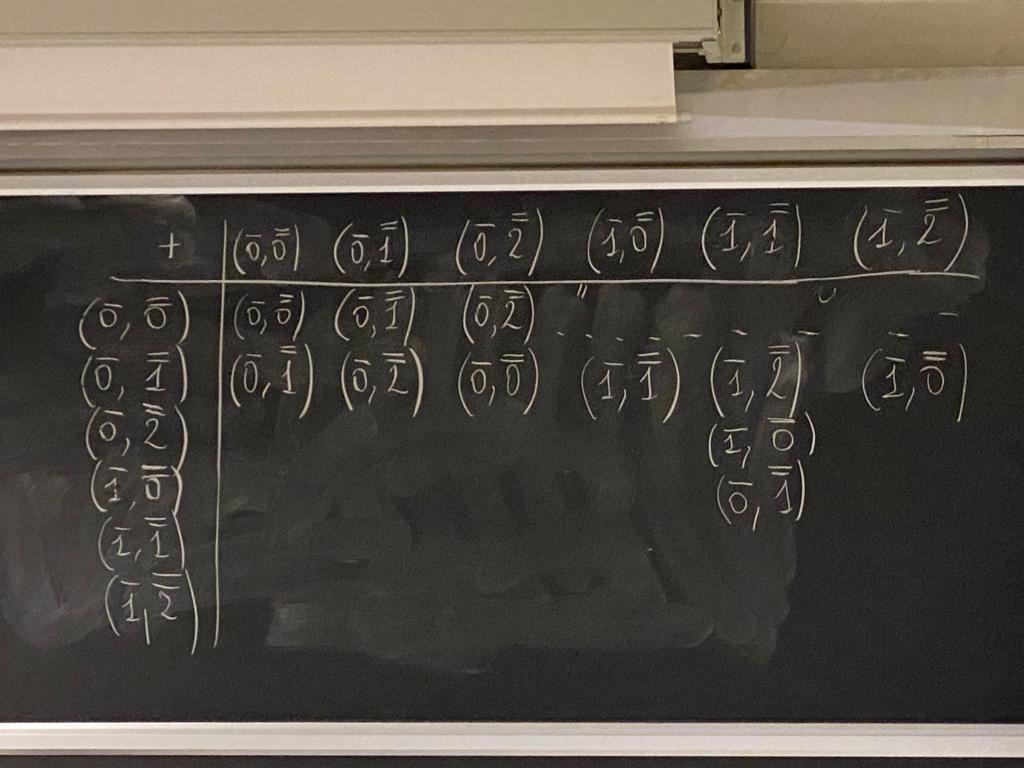 + (0̅,0̿) (0̅,1̿) (0̅,2̿) (1̅,0̿) (1̅,1̿) (1̅,2̿)
(0̅,0̿) (0̅,0̿) (0̅,1̿) (0̅,2̿) "
(0̅,1̿) (0̅,1̿) (0̅,2̿) (0̅,0̿) (1̅,1̿) (1̅,2̿) (1̅,0̿)
(0̅,2̿) (1̅,0̿)
(1̅,0̿) (0̅,1̿)
(1̅,1̿)
(1̅,2̿)